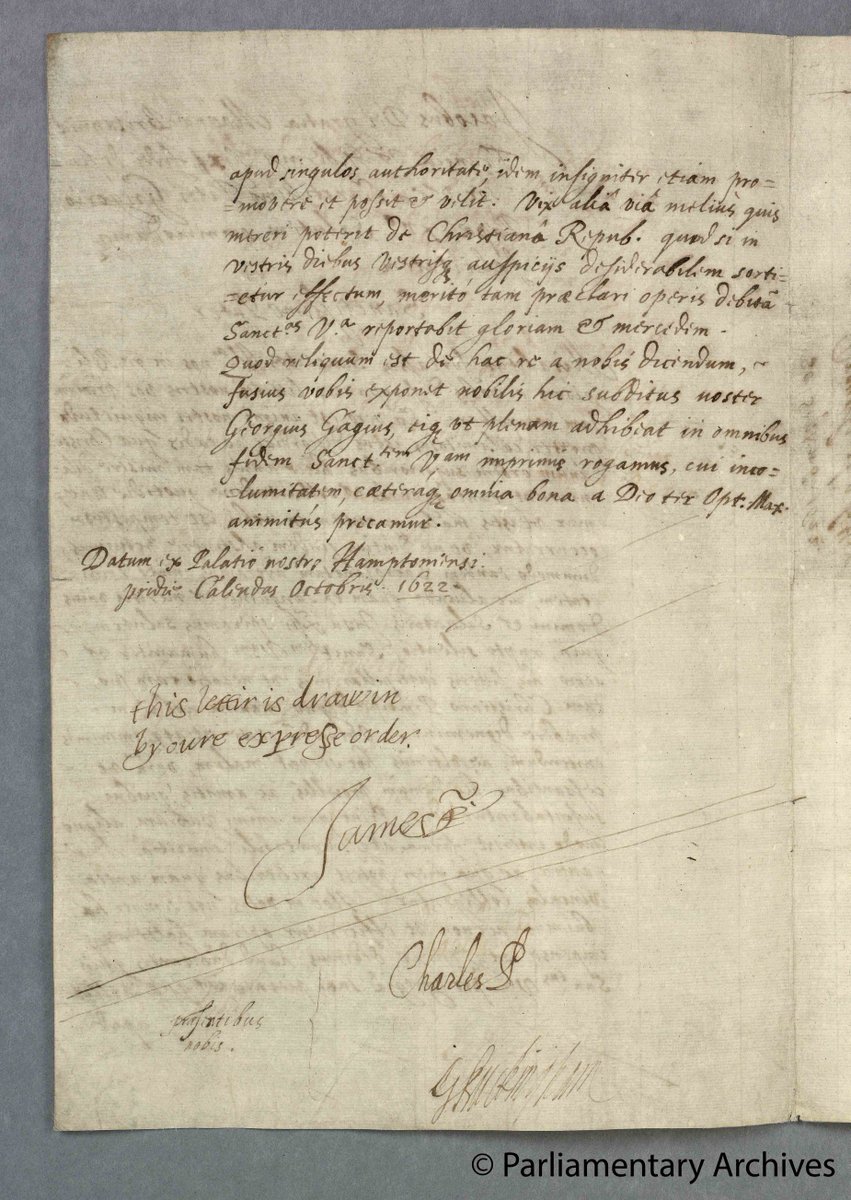 apud singulos authoritate, idem insigniter etiam pro=
=movere et possit & velit. Vix aliâ viâ meliùs quis
mereri poterit de Christianâ Repub. quod si in
vestris diebus vestrisq auspicijs desiderabilem sorti=
=etur effectum, meritò tam præclari operis debitã
Sanct.as V.a reportabit gloriam & mercedem.
Quod reliquum est de hac re a nobis dicendum, ~
fusius vobis exponet nobilis hic subditus noster
Georgius Gagius, eiq vt plenam adhibeat in omnibus
fidem Sanct.tem V.am imprimis rogamus, cui inco=
=lumitatem, cæteraq omnia bona a Deo ter Opt. Max.
animitùs precamur.
Datum ex Palatio nostro Hamptoniensi
pridie Calendas Octobris. 1622.
this lettir is drawin
by oure expresse order.
James R.
Charles P
præsentibus
nobis.
G Buckingham
© Parliamentary Archives